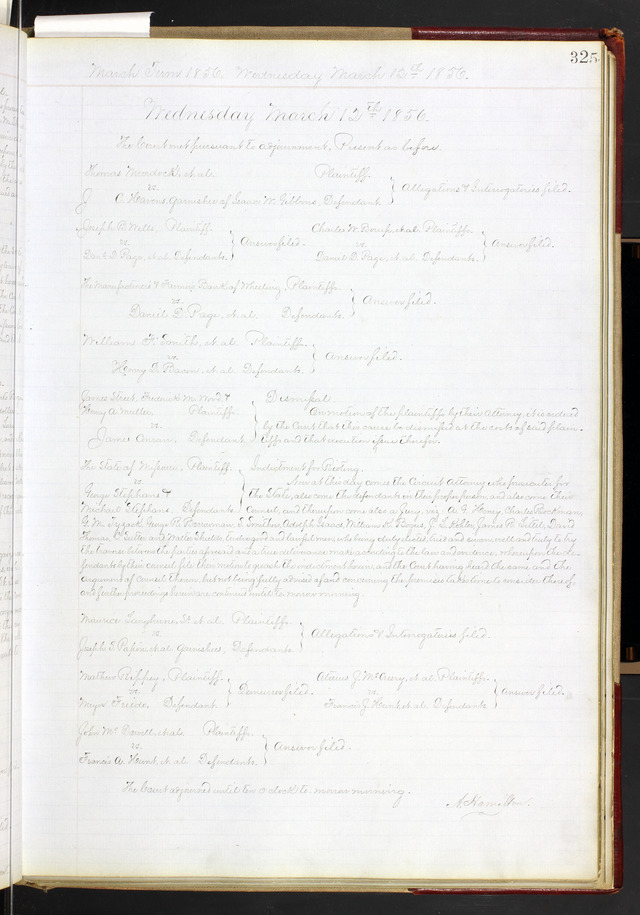 325
March Term 1856. Wednesday March 12th 1856.
Wednesday March 12th 1856.
The Court met pursuant to adjournment, Present as before.
Thomas Murdock, et al. Plaintiffs.
vs.
A. Hearns, garnishee of Isaac W. Gibbons, Defendant.
Allegations & Interrogatories filed.
Joseph B. Wells, Plaintiff.
vs.
Danl. D. Page, et al. Defendants.
Answer filed.
Charles W. et al. Plaintiffs.
vs.
Daniel D. Page, et al. Defendants.
Answer filed.
The Manufacturers & Farmers Bank of Wheeling, Plaintiffs.
vs.
Daniel D. Page, et al. Defendants.
Answer filed.
William H. Smith, et al. Plaintiffs.
vs.
Henry D. Bacon, et al. Defendants.
Answer filed.
James Street, Frederick M. Wood, &
Henry A. Plaintiffs.
vs.
James Defendant.
Dismissal.
On motion of the plaintiffs by their Attorney, it is ordered
by the Court that this cause be dismissed at the costs of said plain-
tiffs and that execution issue therefor.
The State of Missouri, Plaintiff.
vs.
George Stephans &
Michael Stephans. Defendants.
Indictment for Rioting.
Now at this day comes the Circuit Attorney who prosecutes for
the State, also come the defendants in their proper person, and also come their
Counsel, and thereupon come also a Jury, viz A. G. Henry, Charles Beckmann,
G. W. George R. Adolph Isaacs, William H. J. L. James R. David
Thomas, and Walter lawful men who being duly elected, tried and sworn well and truly to try
the issues between the parties aforesaid and a true deliverance make according to the law and evidence, whereupon the de-
fendants by their counsel file their motion to quash the indictment herein, and the Court having heard the same and the
argument of counsel thereon, but not being fully advised of and concerning the premises takes time to consider thereof,
and further proceedings herein are continued until to-morrow morning.
Maurice Langhorne, Sr. et al. Plaintiffs.
vs.
Joseph et al. garnishees, Defendants.
Allegations & Interrogatories filed.
Mathew Rippey, Plaintiff.
vs.
Meyer Friede, Defendant.
Demurrer filed.
J. McCreery, et al. Plaintiffs.
vs.
Francis J. Hunt, et al. Defendants.
Answer filed.
John et al. Plaintiffs.
vs.
Francis A. Hunt, et al. Defendants.
Answer filed.
The Court adjourned until ten o'clock to-morrow morning.
A. Hamilton.